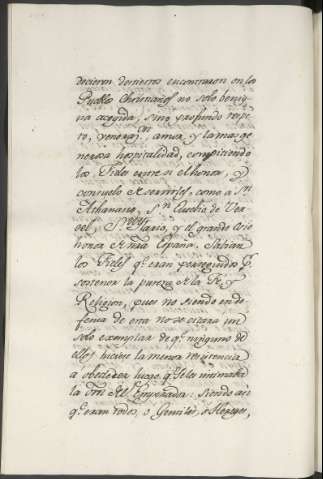 decieron destierros encontraron en los
Pueblos Christianos no solo benig-
na acogida, sino profundo respe-
to, veneraⁿ amor y la mas ge-
nerosa hospitalidad, compitiendo
los Fieles entre si el honor, y
consuelo de servirlos, como a Sⁿ
Athanasio, Sⁿ Eusebio de Ver-
sel, Sⁿ Hilario, y el grande Osio
honor de Nra España. Sabian
los Fieles qᵉ eran perseguidos pʳ
sostener la pureza de la Fe, y
Religion, pues no siendo en de-
fensa de esto no se citara un
solo exemplar de qᵉ ninguno de
ellos hiciese la menor resistencia
a obedecer luego qᵉ se les intimaba
la del Emperador: siendo asi
qᵉ eran todos, o Gentiles, o Hereges,